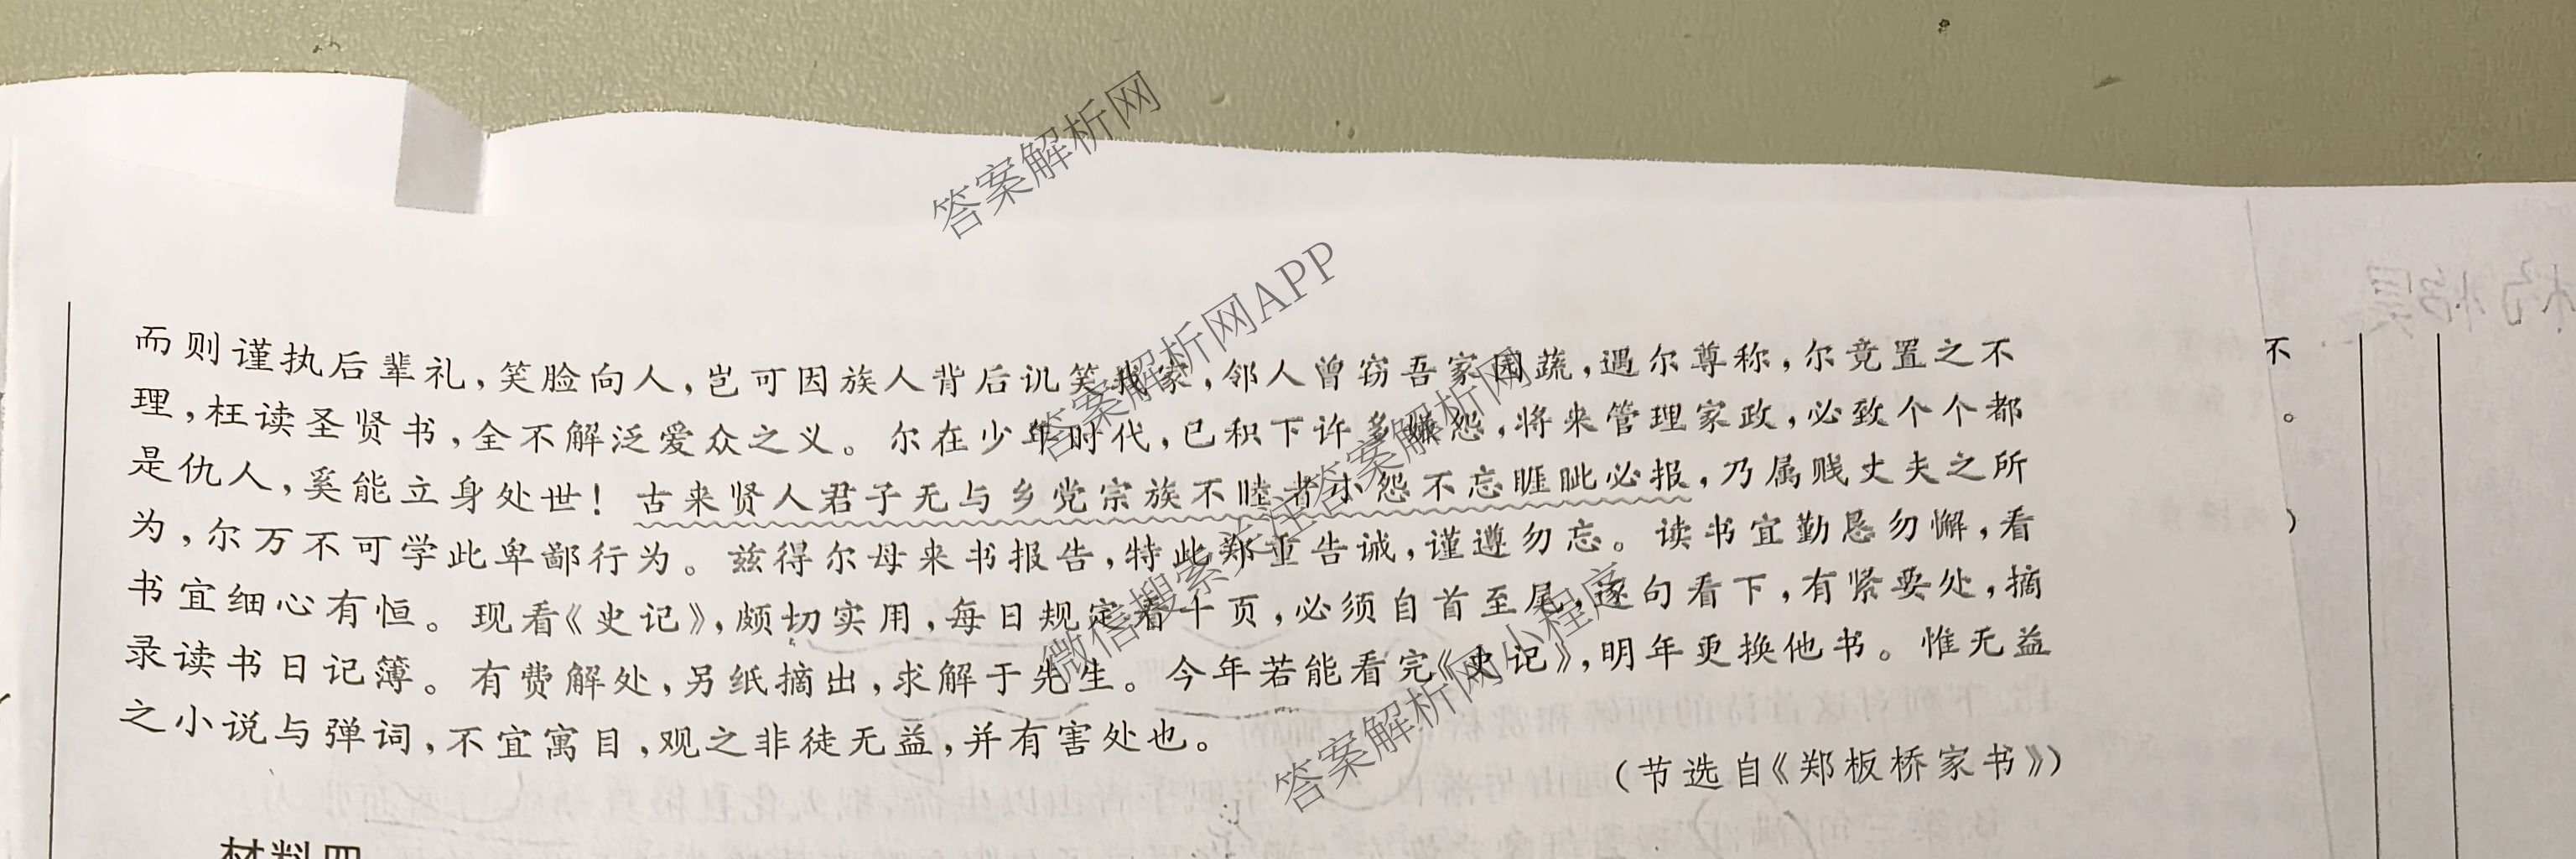 而则谨执后辈礼，笑脸向人，岂可因族人背后讥笑我家，邻人曾窃吾家园蔬，遇尔尊称，尔竟置之不
理，枉读圣贤书，全不解泛爱众之义。尔在少年时代，已积下许多嫌怨，将来管理家政，必致个个都
是仇人，奚能立身处世！古来贤人君子无与乡党宗族不睦者小怨不忘睚眦必报，乃属贱丈夫之所
为，尔万不可学此卑鄙行为。兹得尔母来书报告，特此郑重告诫，谨遵勿忘。读书宜勤恳勿懈，看
书宜细心有恒。现看《史记》，颇切实用，每日规定看十页，必须自首至尾，逐句看下，有紧要处，摘
录读书日记簿。有费解处，另纸摘出，求解于先生。今年若能看完《史记》，明年更换他书。惟无益
之小说与弹词，不宜寓目，观之非徒无益，并有害处也。
（节选自《郑板桥家书》）
材料四
不
。
）
答案解析网
答案解析网APP
微信搜索关注答案解析网
答案解析网小程序